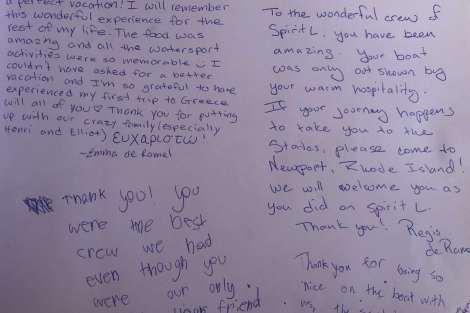 a perfect vacation! I will remember
this wonderful experience for the
rest of my life. The food was
amazing and all the watersport
activities were so memorable I
couldn't have asked for a better
vacation and I'm so grateful to have
experienced my first trip to Greece
with all of you Thank you for putting
up with our crazy family (especially
Henri and Elliot) ΕυχΑριστω!
-Emma de Ramel
Thank you! you
were the best
crew we had
even though you
were our only
friend
To the wonderful crew of
Spirit L. you have been
amazing. Your boat
was only out shown by
your warm hospitality.
If your journey happens
to take you to the
States, please come to
Newport, Rhode Island!
We will welcome you as
you did on Spirit L.
Thank you! Regis
de Ramel
Thank you for being so
nice on the boat with
us,